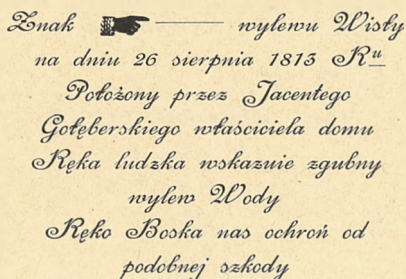 Znak ☛ ——— wylewu Wisły
na dniu 26 sierpnia 1813 Ru
Położony przez Jacentego
Gołęberskiego właściciela domu
Ręka ludzka wskazuie zgubny
wylew Wody
Ręko Boska nas ochroń od
podobnej szkody